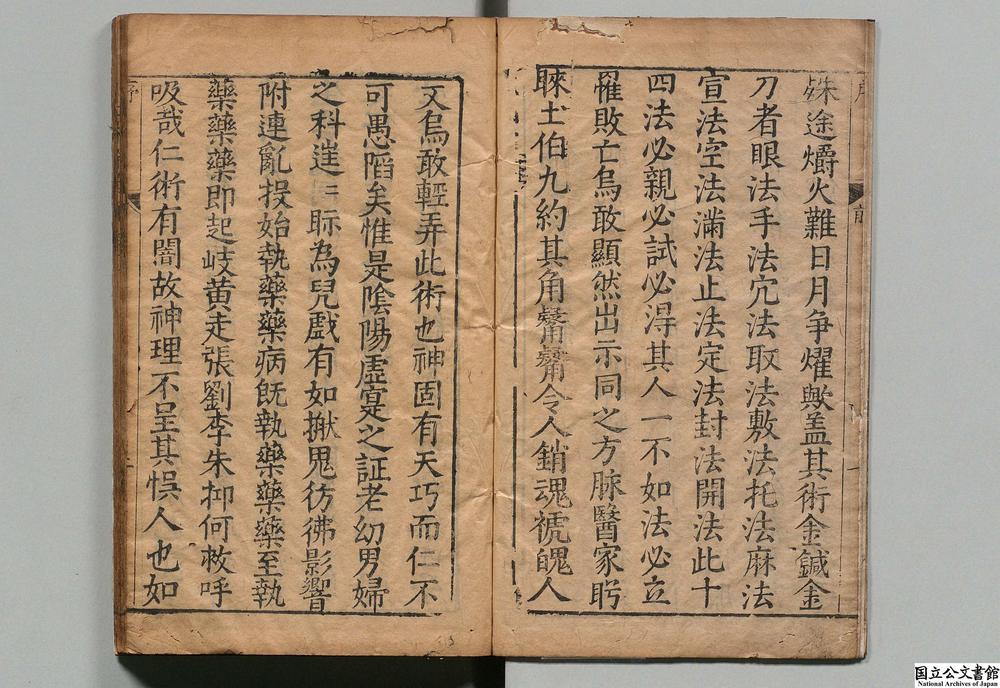 殊途爝火難日月争燿歟盖其術金鍼金
刀者眼法手法宂法取法敷法托法麻法
宣法空法滿法止法定法封法開法此十
四法必親必試必淂其人一不如法必立
罹敗亡烏敢顯然出示同之方脉醫家眄
睞土伯九約其角觺觺令人銷魂褫魄人
文烏敢輕弄此術也神固有天巧而仁不
可愚䧟矣惟是陰陽虗寔之証老幼男婦
之科逬〻眎為兒戲有如揪鬼彷彿影響
附連亂投始執藥藥病旣執藥藥藥至執
藥藥藥即起岐黄走張劉李朱抑何救呼
吸哉仁術有闇故神理不呈其悞人也如
序
国立公文書館
National Archives of Japan